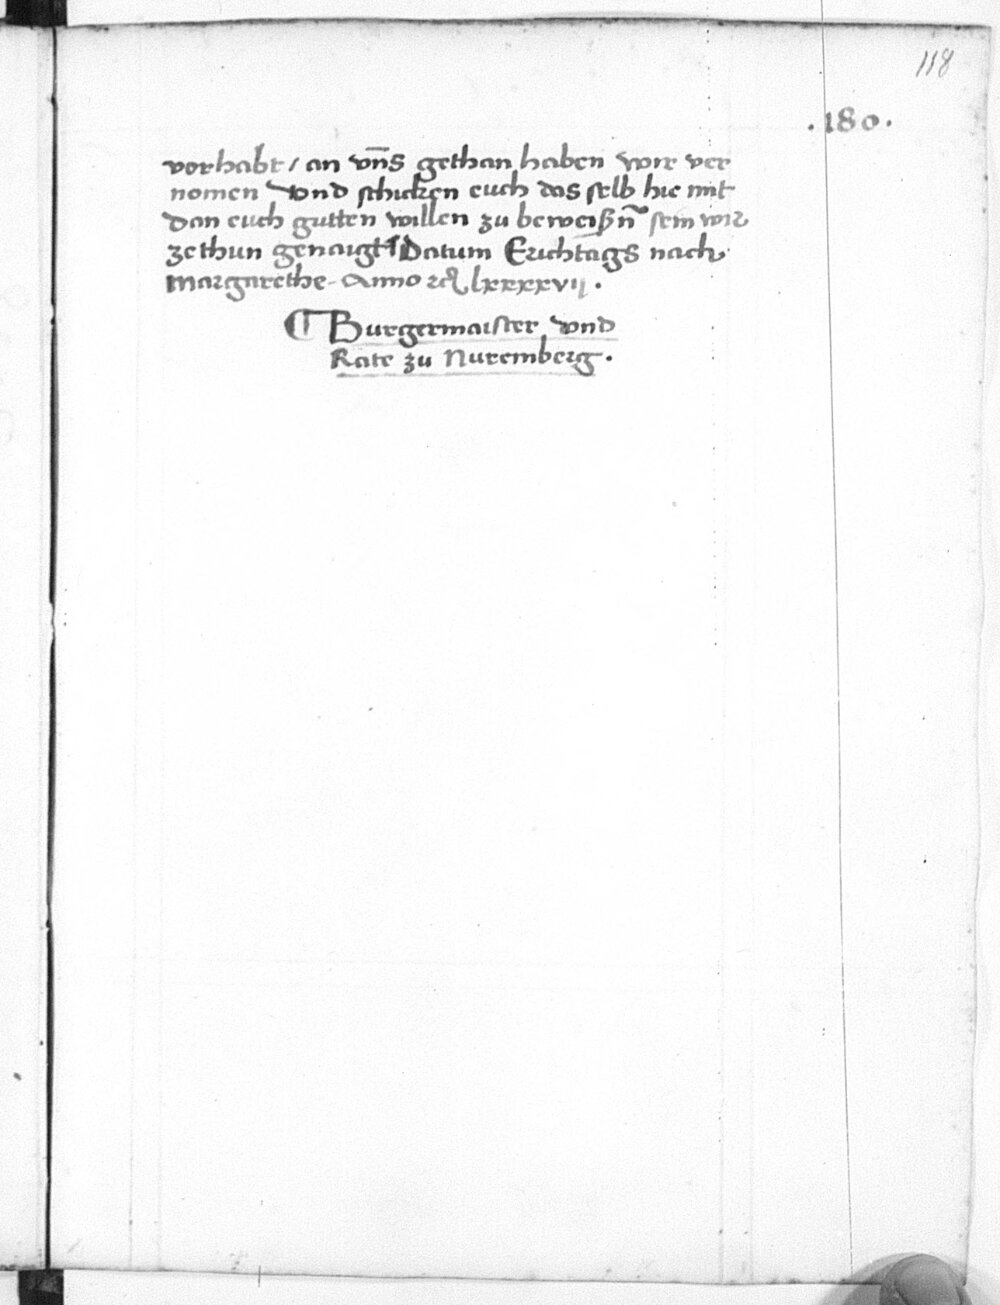 118
.180.
vorhabt / an vn̄s gethan haben wir ver
nomen Vnd schicken euch das selb hie mit
Dan euch gutten willen zu beweisßn̄ sein wir
zethun genaigt Datum Erichtags nach
margarethe - Anno lxxxxvij .
Burgermaister vnd
Rate zu Nuremberg .